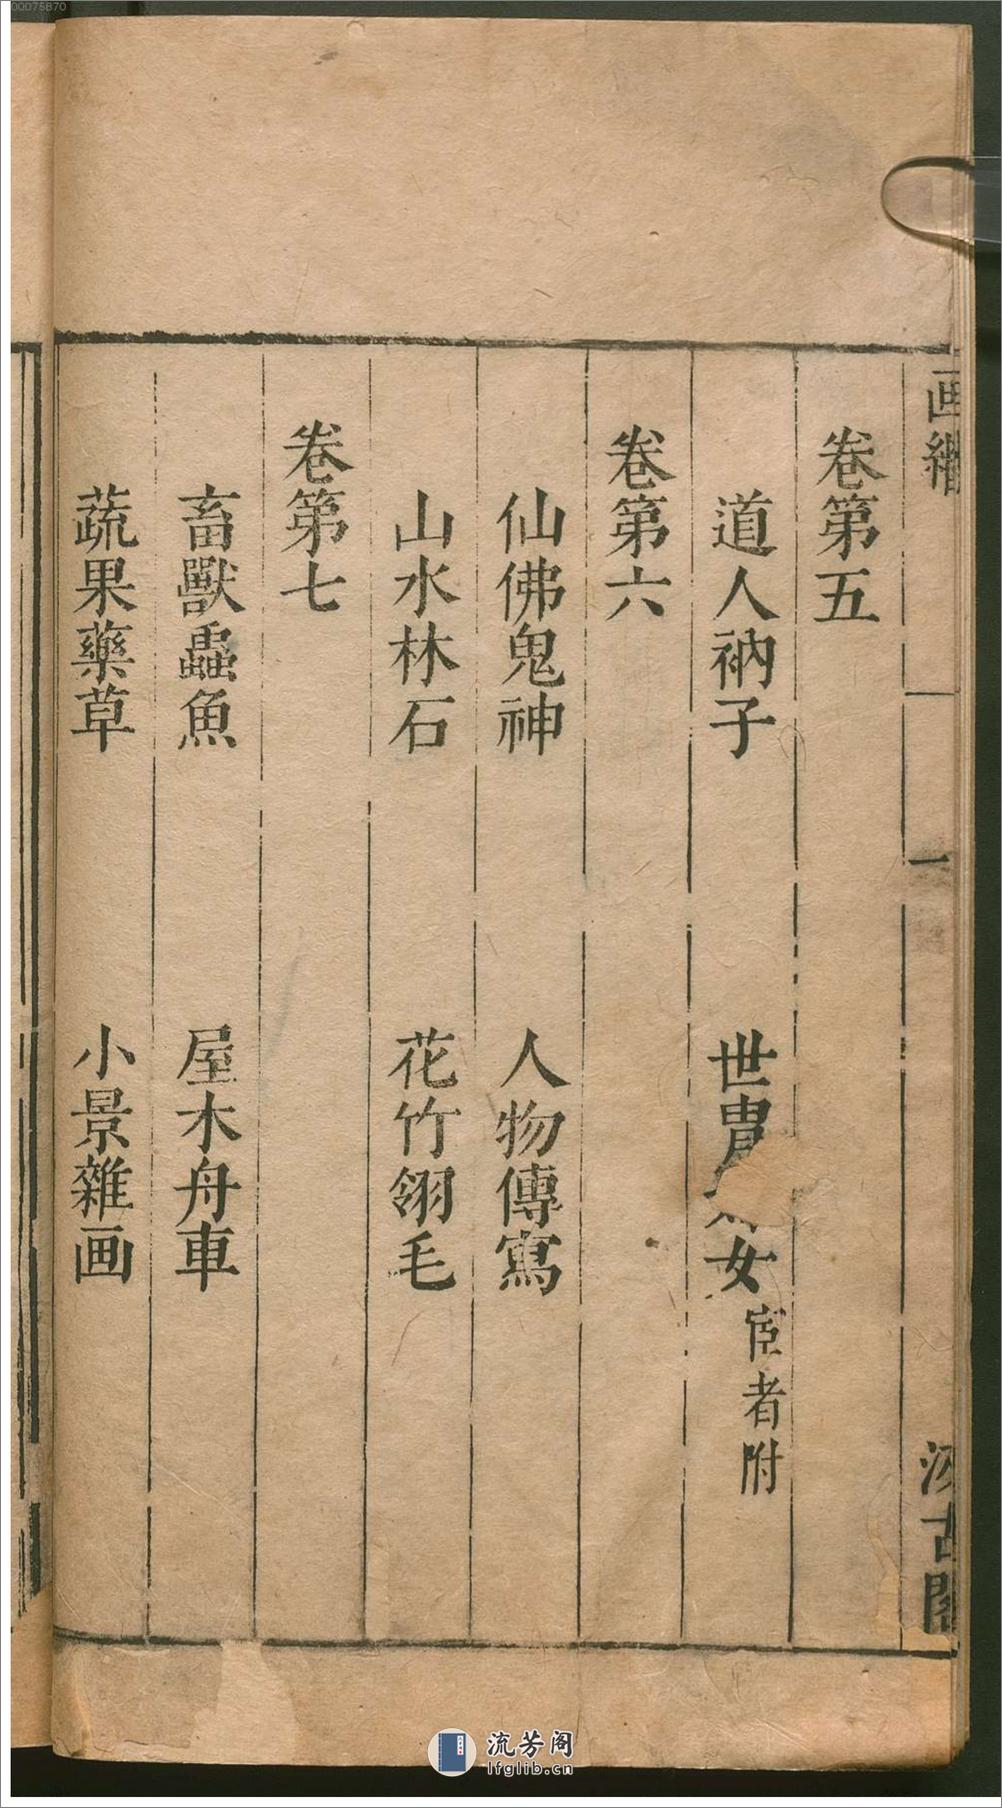 画繼 一 汲古閣
卷第五
道人衲子 世胄女宦者附
卷第六
仙佛鬼神 人物傳寫
山水林石 花竹翎毛
卷第七
畜獸蟲魚 屋木舟車
蔬果藥草 小景雜画
00075870
流芳阁
lfglib.cn